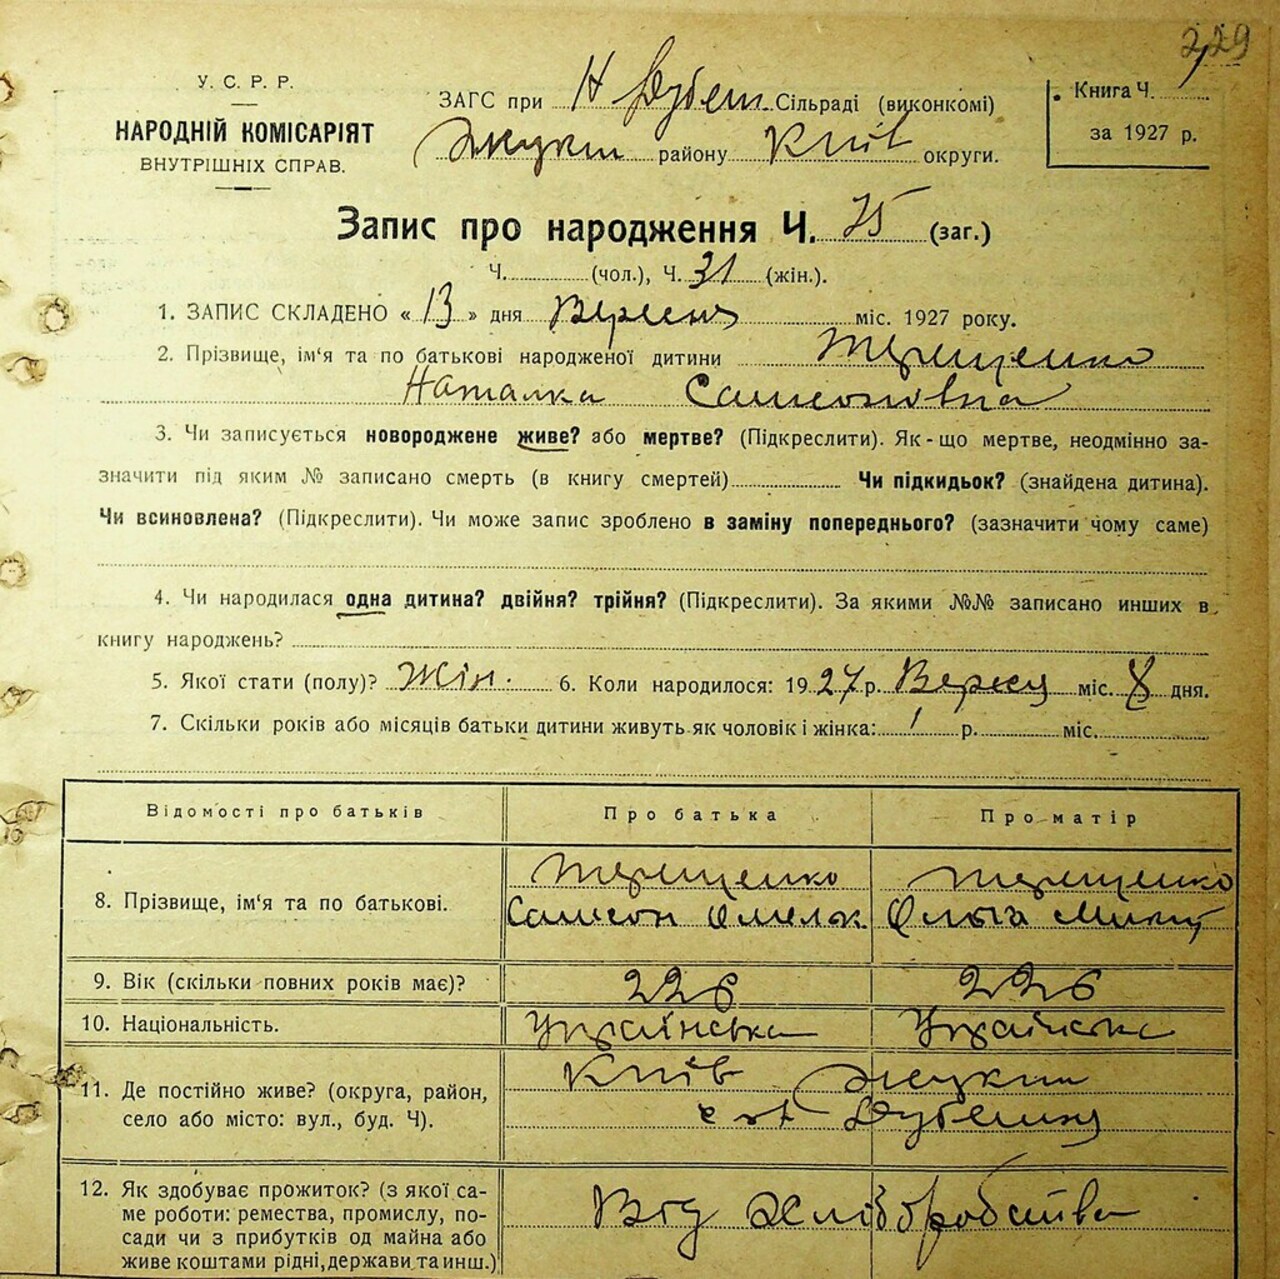 229
У. С. Р. Р.
НАРОДНІЙ КОМІСАРІЯТ
ВНУТРІШНІХ СПРАВ.
ЗАГС при Н Дубеш. Сільраді (виконкомі)
району Київ округи.
Книга Ч.
за 1927 р.
Запис про народження Ч. 75 (заг.)
Ч. (чол.), Ч. 31 (жін.).
1. ЗАПИС СКЛАДЕНО « 13 » дня Вересня міс. 1927 року.
2. Прізвище, ім‘я та по батькові народженої дитини Терещенко
Наталка Самсоновна
3. Чи записується новороджене живе? або мертве? (Підкреслити). Як-що мертве, неодмінно за-
значити під яким № записано смерть (в книгу смертей) Чи підкидьок? (знайдена дитина).
Чи всиновлена? (Підкреслити). Чи може запис зроблено в заміну попереднього? (зазначити чому саме)
4. Чи народилася одна дитина? двійня? трійня? (Підкреслити). За якими №№ записано инших в
книгу народжень?
5. Якої стати (полу)? Жін. 6. Коли народилося: 1927 р. міс. 8 дня.
7. Скільки років або місяців батьки дитини живуть як чоловік і жінка: 1 р. міс.
Відомості про батьків Про батька Про матір
8. Прізвище, ім‘я та по батькові. Терещенко Самсон Омельк Терещенко Ольга
9. Вік (скільки повних років має)? 22 22
10. Національність. Українська Українська
11. Де постійно живе? (округа, район, Київ
село або місто: вул., буд. Ч).
12. Як здобуває прожиток? (з якої са-
ме роботи: ремества, промислу, по- Від Хліборобства
сади чи з прибутків од майна або
живе коштами рідні, держави та инш.)